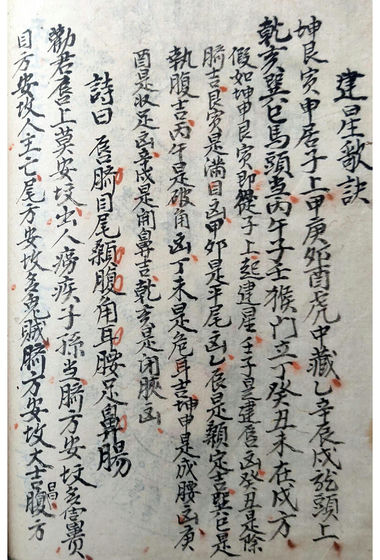 建星歌訣
坤艮寅申居子上甲庚卯酉虎中藏乙辛辰戌龍頭上
乾亥巽巳馬頭当丙午子壬猴門立丁癸丑未在戌方
假如坤申艮寅即從子上起建星壬子是建唇凶癸丑是除
肺吉艮寅是満目凶甲卯是平尾凶乙辰是顙定吉巽巳是
執腹吉丙午是破角凶丁未是危耳吉坤申是成腰凶庚
酉是收足凶辛戌是開鼻吉乾亥是闭腋凶
詩曰 唇肺目尾顙腹角耳腰足鼻腸
勸君唇上莫安坟出人癆疾子孫当肺方安坟多富貴
目方安坟人主亡尾方安坟多鬼賊肺方安坟大吉昌腹方